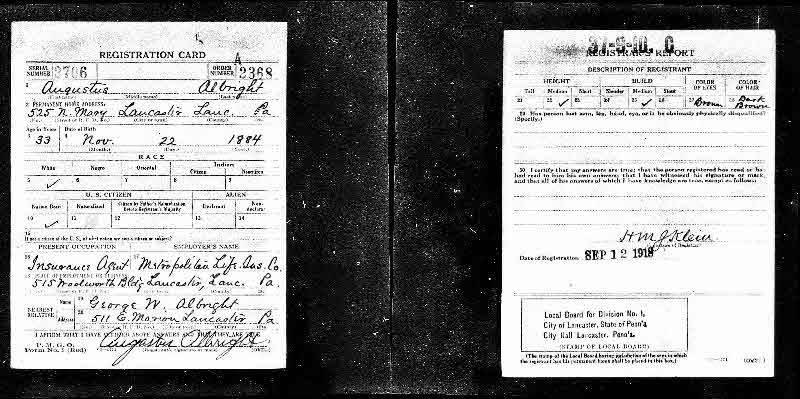 REGISTRATION CARD
SERIAL NUMBER 3706 ORDER NUMBER A 2368
1 Augustus Albright
2 PERMANENT HOME ADDRESS:
525 N. Mary Lancaster Lanc. Pa
Age in Years Date of Birth
33 Nov. 22 1884
(Month.) (Day.) (Year.)
RACE
White Negro Oriental Indian
Citizen Noncitizen
5 ✓ 6 7 8 9
U. S. CITIZEN ALIEN
Native Born Naturalized Citizen by Father's Naturalization Before Registrant's Majority Declarant Non-declarant
10 ✓ 11 12 13 14
15
If not a citizen of the U.S., of what nation are you a citizen or subject?
PRESENT OCCUPATION EMPLOYER'S NAME
16 Insurance Agent 17 Metropolitan Life Ins. Co.
18 PLACE OF EMPLOYMENT OR BUSINESS
515 Woolworth Bldg Lancaster, Lanc. Pa.
NEAREST RELATIVE Name 19 George W. Albright
Address 20 511 E. Marion Lancaster Pa
I AFFIRM THAT I HAVE VERIFIED ABOVE ANSWERS AND THAT THEY ARE TRUE
P. M. G. O.
Form No. 1 (Red) Augustus Albright (OVER)
37-9-10. C
REGISTRAR'S REPORT
DESCRIPTION OF REGISTRANT
HEIGHT BUILD COLOR OF EYES COLOR OF HAIR
Tall Medium Short Slender Medium Stout
21 22 ✓ 23 24 25 ✓ 26 27 Brown 28 Dark Brown
29 Has person lost arm, leg, hand, eye, or is he obviously physically disqualified?
(Specify.)
30 I certify that my answers are true; that the person registered has read or has
had read to him his own answers; that I have witnessed his signature or mark,
and that all of his answers of which I have knowledge are true, except as follows:
H M J Klein
Date of Registration SEP 12 1918
Local Board for Division No. 1,
City of Lancaster, State of Penn'a
City Hall Lancaster, Penn'a.
(STAMP OF LOCAL BOARD)
(The stamp of the Local Board having jurisdiction of the area in which
the registrant has his permanent home shall be placed in this box.)
(OVER)